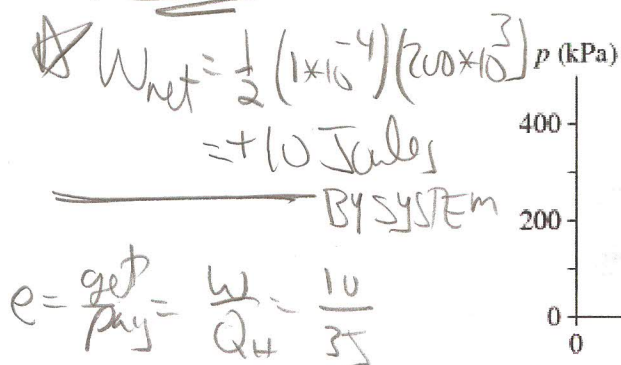 ☆ W_net = 1/2 (1*10^-4)(200*10^3)
= +10 Joules
BY SYSTEM
e = get/pay = W/Q_H = 10/35
p (kPa)
400
200
0
0